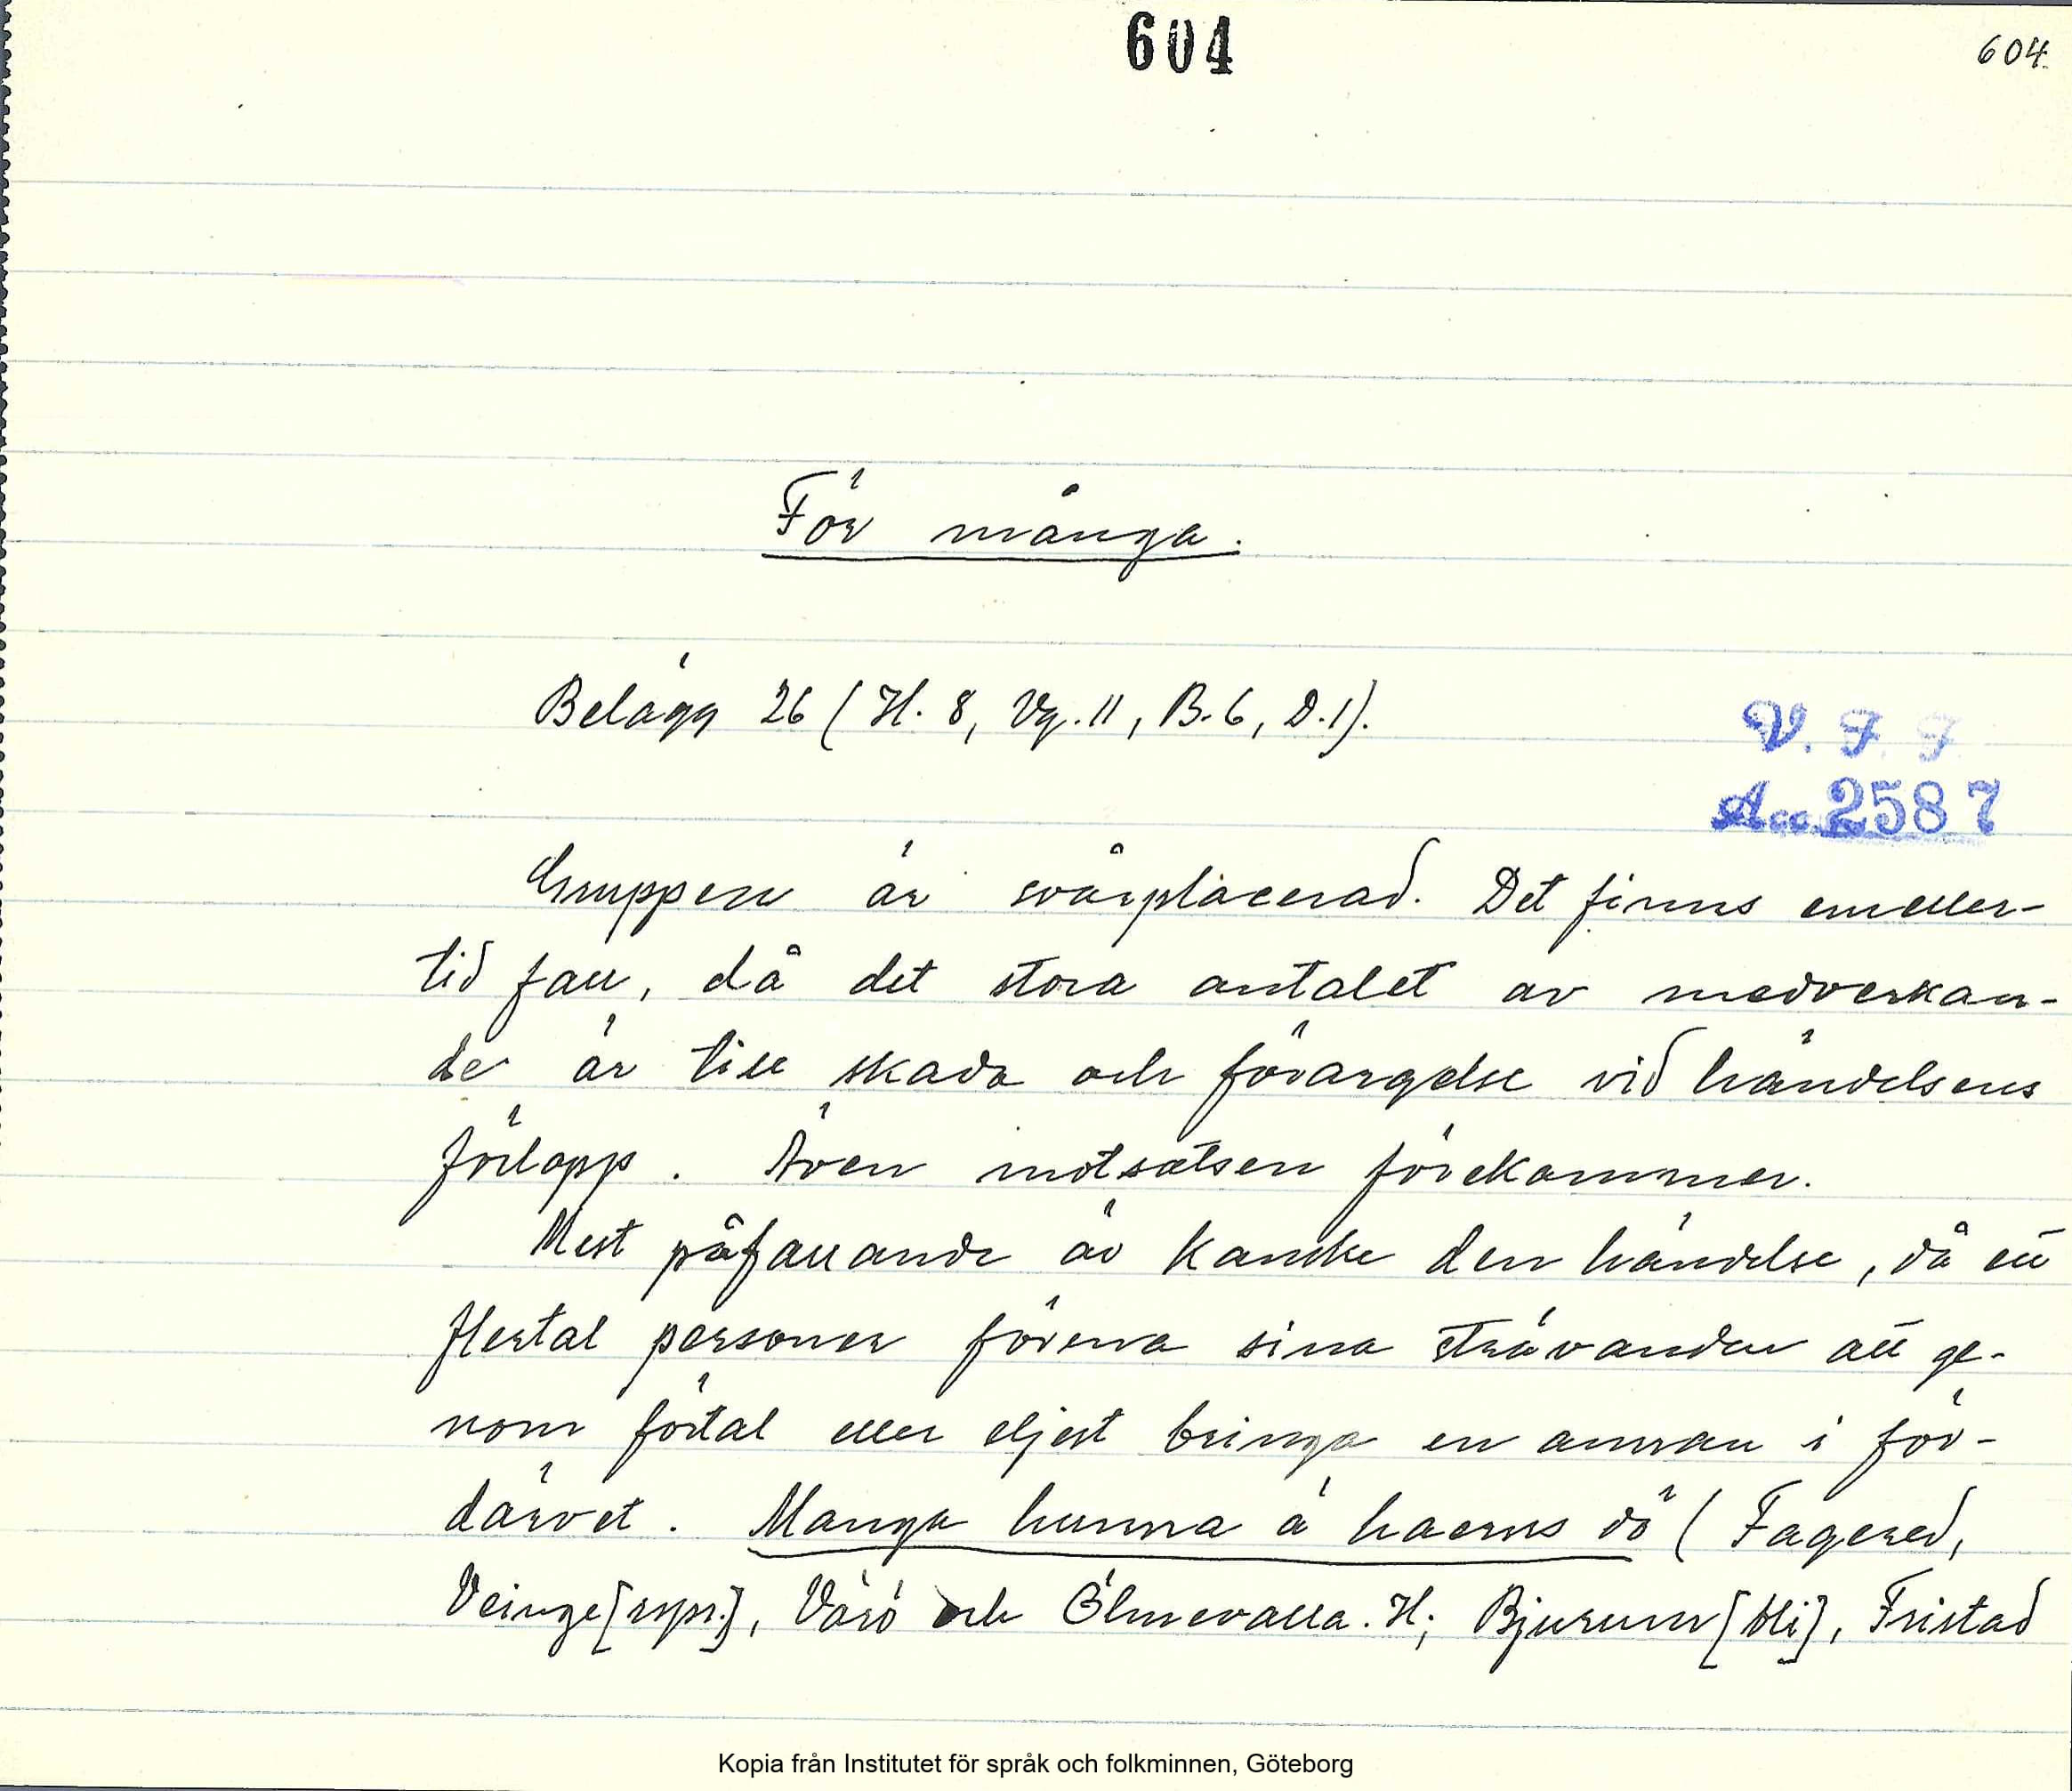 604
604.
För många.
Belägg 26 (H. 8, Vg. 11, B. 6, D. 1).
V. F. F.
Acc. 2587
Gruppen är svårplacerad. Det finns emeller-
tid fall, då det stora antalet av medverkan-
de är till skada och förargelse vid händelsens
förlopp. Även motsatsen förekommer.
Mest påfallande är kanske den händelse, då ett
flertal personer förena sina strävanden att ge-
nom förtal eller eljest bringa en annan i för-
därvet. Manga hunna ä haerns dö (Fagered,
Veinge [rspr.], Värö och Ölmevalla. H; Bjurum [bli], Fristad
Kopia från Institutet för språk och folkminnen, Göteborg